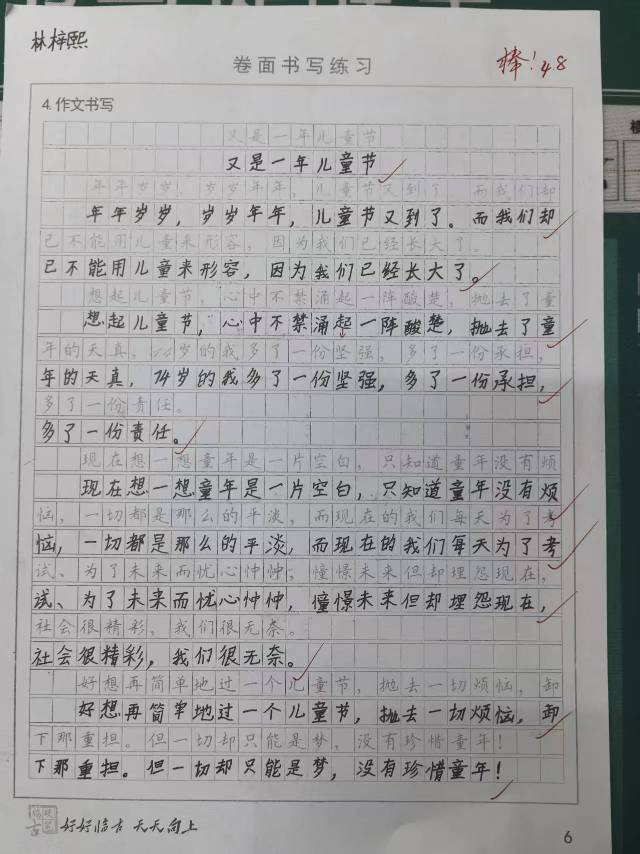 林梓熙
卷面书写练习
棒!48
4.作文书写
又是一年儿童节
又是一年儿童节
年年岁岁,岁岁年年,儿童节又到了。而我们却
年年岁岁,岁岁年年,儿童节又到了。而我们却
已不能用儿童来形容,因为我们已经长大了。
已不能用儿童来形容,因为我们已经长大了。
想起儿童节,心中不禁涌起一阵酸楚,抛去了童
想起儿童节,心中不禁涌起一阵酸楚,抛去了童
年的天真,14岁的我多了一份坚强,多了一份承担,
年的天真,14岁的我多了一份坚强,多了一份承担,
多了一份责任。
多了一份责任。
现在想一想童年是一片空白,只知道童年没有烦
现在想一想童年是一片空白,只知道童年没有烦
恼,一切都是那么的平淡,而现在的我们每天为了考
恼,一切都是那么的平淡,而现在的我们每天为了考
试、为了未来而忧心忡忡;憧憬未来但却埋怨现在,
试、为了未来而忧心忡忡,憧憬未来但却埋怨现在,
社会很精彩,我们很无奈。
社会很精彩,我们很无奈。
好想再简单地过一个儿童节,抛去一切烦恼,卸
好想再简单地过一个儿童节,抛去一切烦恼,卸
下那重担。但一切却只能是梦,没有珍惜童年!
下那重担。但一切却只能是梦,没有珍惜童年!
好好临古 天天向上
6